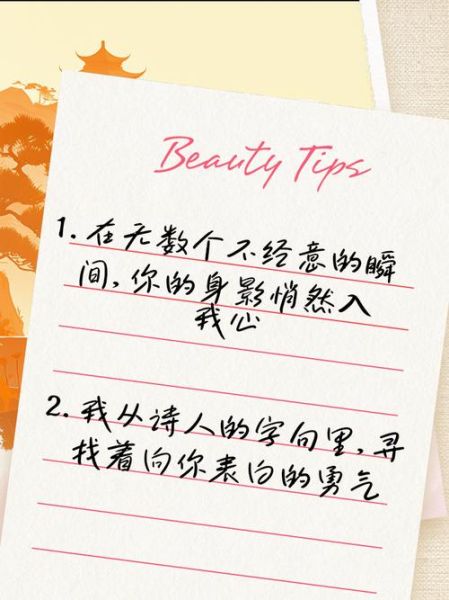 Beauty Tips
1. 在无数个不经意的瞬
间,你的身影悄然入
我心
2. 我从诗人的字句里,寻
找着向你表白的勇气